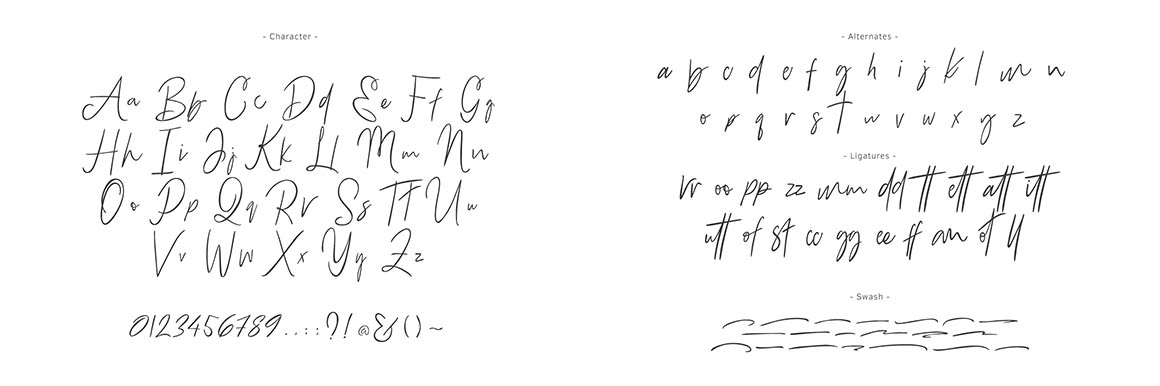 - Character -
Aa Bb Cc Dd Ee Ff Gg
Hh Ii Jj Kk Ll Mm Nn
Oo Pp Qq Rr Ss Tt Uu
Vv Ww Xx Yy Zz
0123456789.,:;?!@&()~
- Alternates -
a b c d e f g h i j k l m n
o p q r s t u v w x y z
- Ligatures -
rr oo pp zz mm dd tt ett att itt
utt of st cc gg ee ff am ot ll
- Swash -